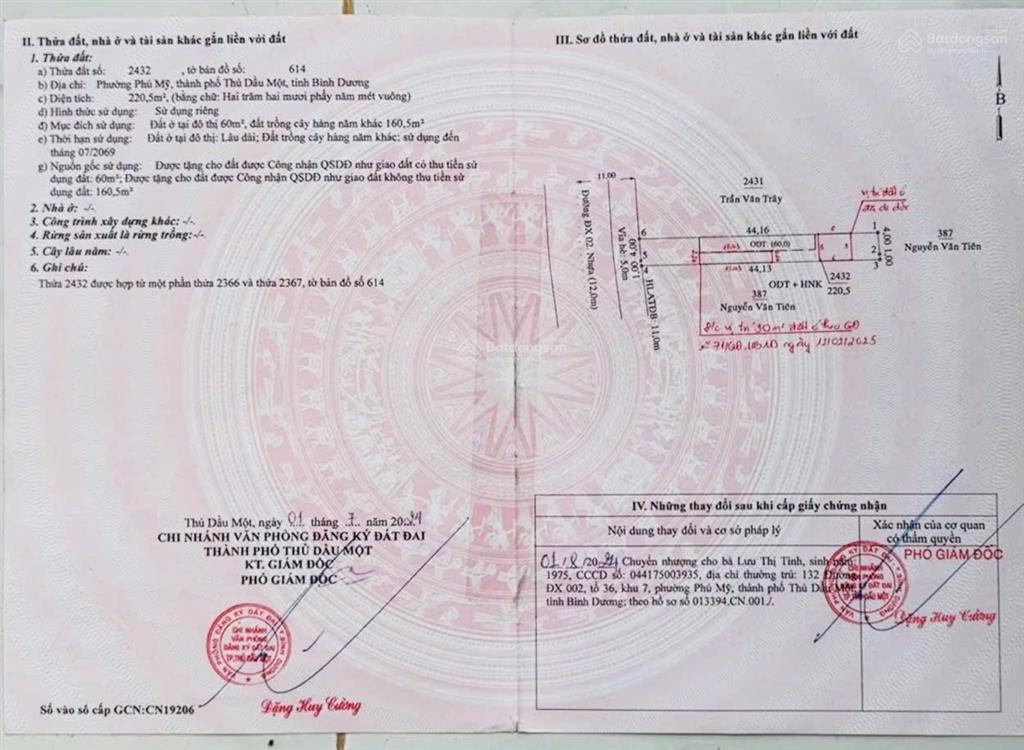 II. Thửa đất, nhà ở và tài sản khác gắn liền với đất
1. Thửa đất:
a) Thửa đất số: 2432 , tờ bản đồ số: 614
b) Địa chỉ: Phường Phú Mỹ, thành phố Thủ Dầu Một, tỉnh Bình Dương
c) Diện tích: 220,5m², (bằng chữ: Hai trăm hai mươi phẩy năm mét vuông)
d) Hình thức sử dụng: Sử dụng riêng
đ) Mục đích sử dụng: Đất ở tại đô thị 60m², đất trồng cây hàng năm khác 160,5m²
e) Thời hạn sử dụng: Đất ở tại đô thị: Lâu dài; Đất trồng cây hàng năm khác: sử dụng đến
tháng 07/2069
g) Nguồn gốc sử dụng: Được tặng cho đất được Công nhận QSDĐ như giao đất có thu tiền sử
dụng đất: 60m²; Được tặng cho đất được Công nhận QSDĐ như giao đất không thu tiền sử
dụng đất: 160,5m²
2. Nhà ở: -/-
3. Công trình xây dựng khác: -/-
4. Rừng sản xuất là rừng trồng:-/-
5. Cây lâu năm: -/-
6. Ghi chú:
Thửa 2432 được hợp từ một phần thửa 2366 và thửa 2367, tờ bản đồ số 614
Thủ Dầu Một, ngày 01 tháng 7 năm 2024
CHI NHÁNH VĂN PHÒNG ĐĂNG KÝ ĐẤT ĐAI
THÀNH PHỐ THỦ DẦU MỘT
KT. GIÁM ĐỐC
PHÓ GIÁM ĐỐC
VĂN PHÒNG ĐĂNG KÝ ĐẤT ĐAI
BÌNH DƯƠNG
CHI NHÁNH
VĂN PHÒNG
ĐĂNG KÝ ĐẤT ĐAI
TP.THỦ DẦU MỘT
Đặng Huy Cường
Số vào sổ cấp GCN:CN19206
III. Sơ đồ thửa đất, nhà ở và tài sản khác gắn liền với đất
Batdongsan
B
11,00
Đường ĐX 02 - Nhựa (12,0m)
Vỉa hè: 5,0m
HLATĐB: 11,0m
2431
Trần Văn Trây
vị trí đất ở
6
5
1,00 4,00
44,16
ODT (60,0)
44,13
1
2
3
4,00 1,00
387
Nguyễn Văn Tiên
2432
220,5
ODT + HNK
387
Nguyễn Văn Tiên
Đ/c vị trí 30m² đất ở theo QĐ
ngày 12/02/2025
Batdongsan
IV. Những thay đổi sau khi cấp giấy chứng nhận
Nội dung thay đổi và cơ sở pháp lý
Xác nhận của cơ quan
có thẩm quyền
01/8/2024 Chuyển nhượng cho bà Lưu Thị Tình, sinh năm
1975, CCCD số: 044175003935, địa chỉ thường trú: 132 Đường
ĐX 002, tổ 36, khu 7, phường Phú Mỹ, thành phố Thủ Dầu Một,
tỉnh Bình Dương; theo hồ sơ số 013394.CN.001./.
PHÓ GIÁM ĐỐC
CHI NHÁNH
VĂN PHÒNG
ĐĂNG KÝ ĐẤT ĐAI
TP.THỦ DẦU MỘT
Đặng Huy Cường